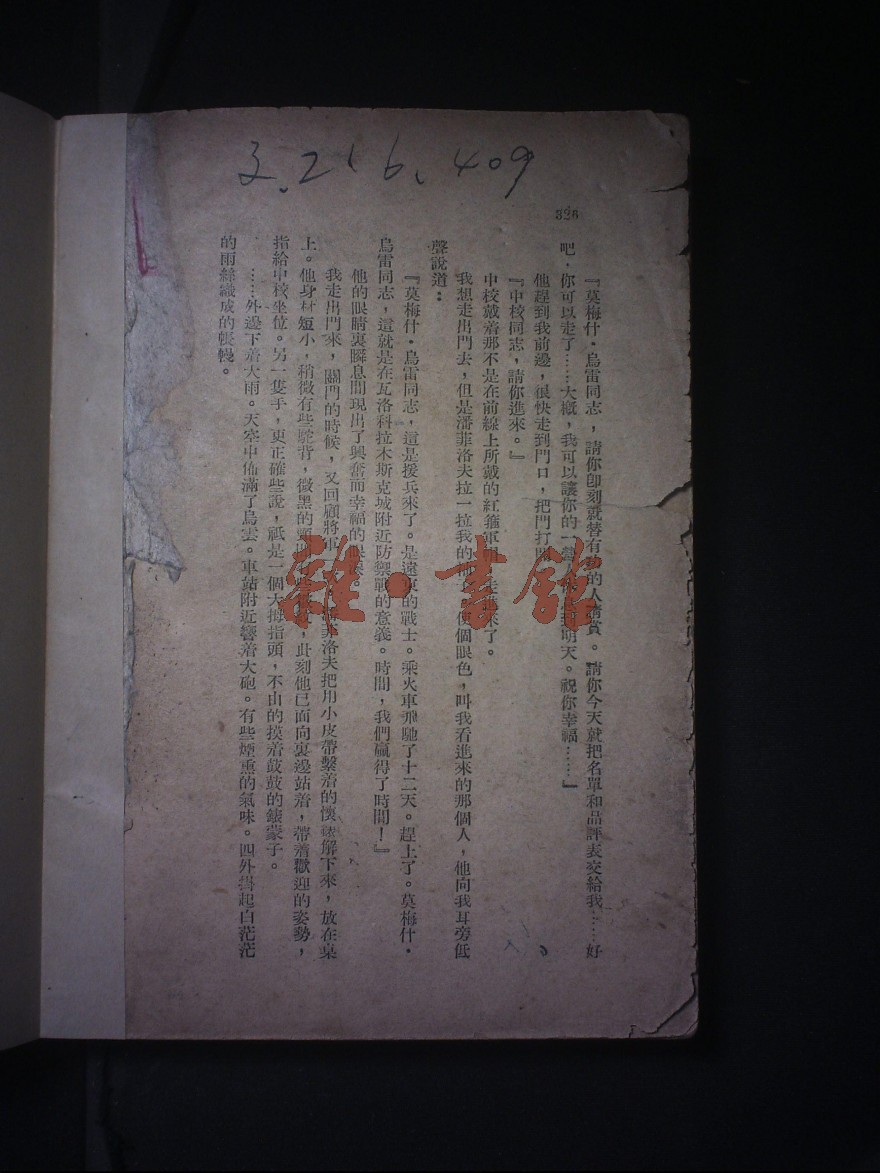 3.216.409
328
『莫梅什·烏雷同志，請你卽刻就替有功的人請賞。請你今天就把名單和品評表交給我……好
吧，你可以走了……大槪，我可以讓你的一營人休息到明天。祝你幸福……』
他趕到我前邊，很快走到門口，把門打開。
『中校同志，請你進來。』
中校戴着那不是在前線上所戴的紅箍軍帽，走進來了。
我想走出門去，但是潘菲洛夫拉一拉我的 使個眼色，叫我看進來的那個人，他向我耳旁低
聲說道：
『莫梅什·烏雷同志，這是援兵來了。是遠東的戰士。乘火車飛馳了十二天。趕上了。莫梅什·
烏雷同志，這就是在瓦洛科拉木斯克城附近防禦戰的意義。時間，我們贏得了時間！』
他的眼睛裏瞬息間現出了興奮而幸福的眼淚。
我走出門來，關門的時候，又回顧將軍 菲洛夫把用小皮帶繫着的懷錶解下來，放在桌
上。他身材短小，稍微有些駝背，微黑的 ，此刻他已面向裏邊站着，帶着歡迎的姿勢，
指給中校坐位。另一隻手，更正確些說，祗是一個大拇指頭，不由的摸着鼓鼓的錶蒙子。
……外邊下着大雨。天空中佈滿了烏雲。車站附近響着大砲。有些煙熏的氣味。四外掛起白茫茫
的雨絲織成的帳幔。
雜·書館